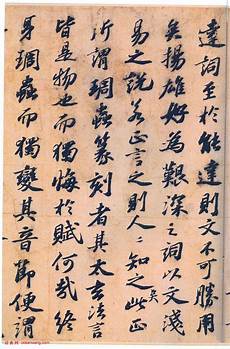 達詞至於能達則文不可勝用
矣揚雄好為艱深之詞以文淺
易之說若正言之則人〻知之矣此正
所謂琱蟲篆刻者其太玄法言
皆是物也而獨悔於賦何哉終
身琱蟲而獨變其音節便謂